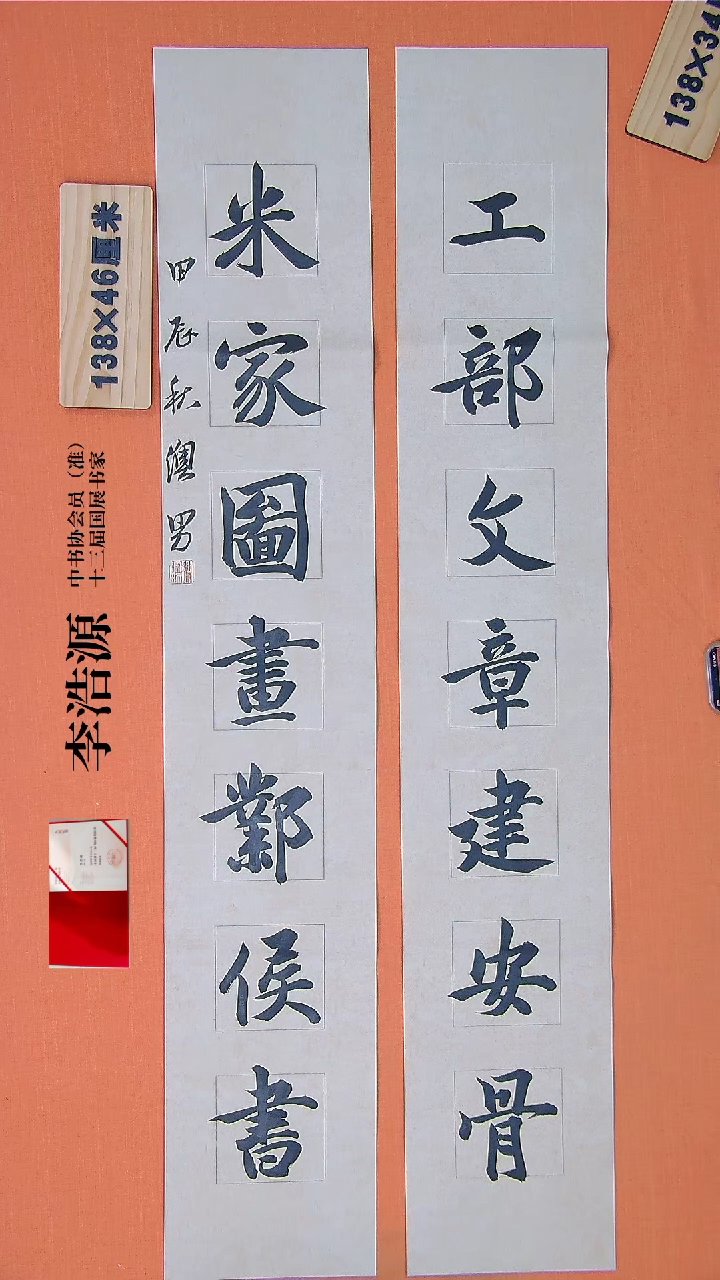 工部文章建安骨
米家圖畫鄴侯書
甲辰秋澳男
138×46厘米
138×34
李浩源
中书协会员（准）
十三届国展书家